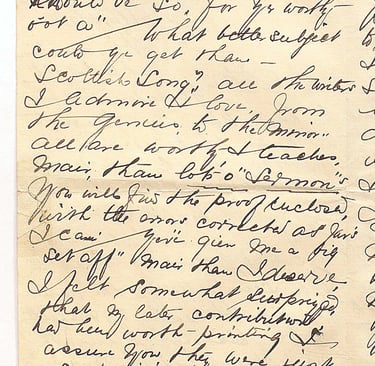 would be so, for ye worthy
oot a" What better subject
could ye get than –
Scottish Song", all the writers
I admire & love, from
the Genius, to the Minor"
all are worthy & teaches,
mair, than lots o' Sermon"s
You will find the proof enclosed,
with the errors corrected as far's
I can ye've gien me a big
set aff" mair than I deserve
I felt somewhat surprized,
that my later contributions
had been worth – printing I
assure you they were just